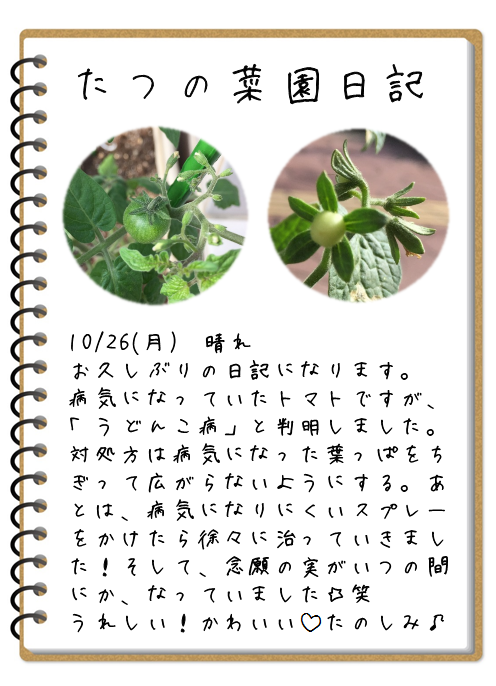 たつの菜園日記
10/26(月) 晴れ
お久しぶりの日記になります。
病気になっていたトマトですが、
「うどんこ病」と判明しました。
対処方は病気になった葉っぱをち
ぎって広がらないようにする。あ
とは、病気になりにくいスプレー
をかけたら徐々に治っていきまし
た！そして、念願の実がいつの間
にか、なっていました✩笑
うれしい！かわいい♡たのしみ♪